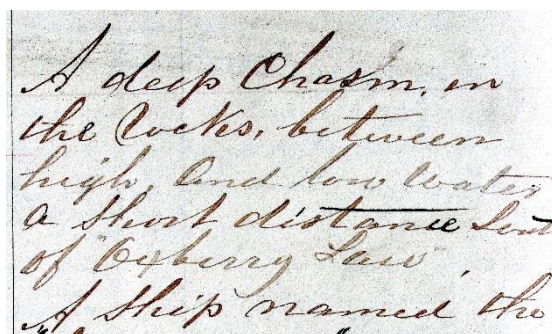 A deep Chasm, in
the Rocks, between
high, and low water
a short distance
of "Oxberry Law"
A ship named the